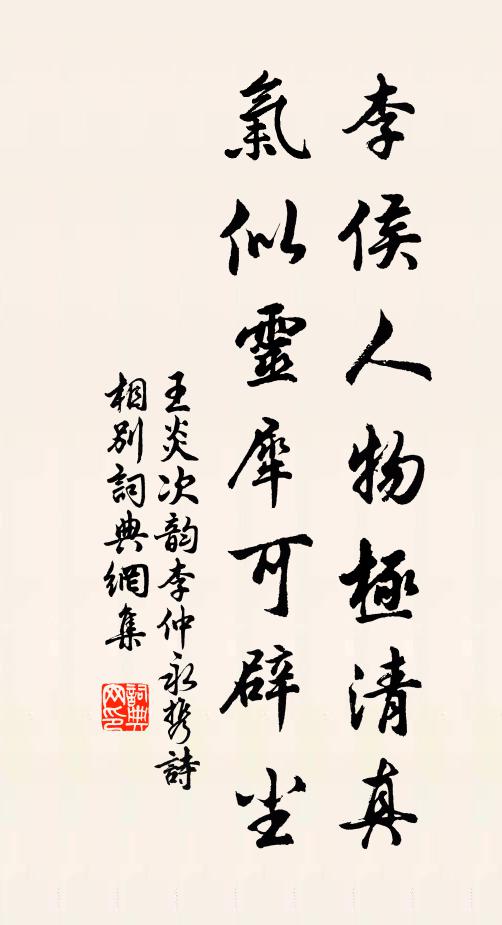 李侯人物極清真
氣似靈犀可辟尘
王炎次韵李仲永携詩
相別詞典網集
詞典
网印